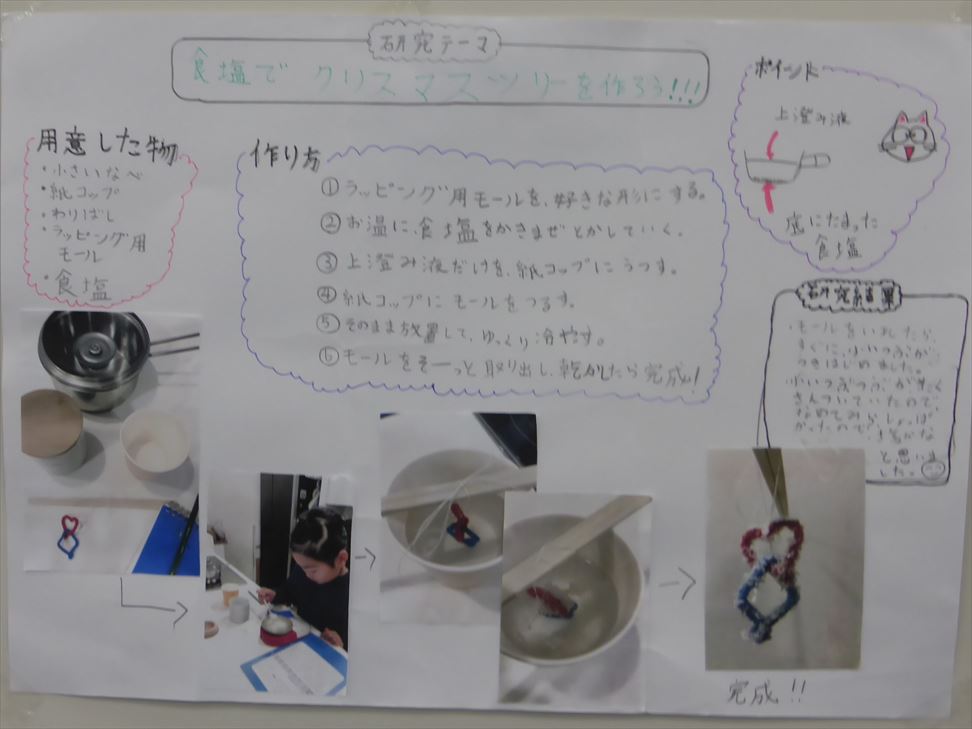 研究テーマ
食塩でクリスマスツリーを作ろう!!!
用意した物
・小さいなべ
・紙コップ
・わりばし
・ラッピング用
モール
・食塩
作り方
①ラッピング用モールを、好きな形にする。
②お温に、食塩をかきまぜとかしていく。
③上澄み液だけを、紙コップにうつす。
④紙コップにモールをつるす。
⑤そのまま放置して、ゆっくり冷やす。
⑥モールをそーっと取り出し、乾かしたら完成!
ポイント
上澄み液
底にたまった
食塩
研究結果
・モールをいれたら、
すぐに、小いつぶが、
つきはじめました。
小いつぶつぶがたく
さんついていたので、
なめてみたらしょっぱ
かったので、
と思いま
した。
完成!!